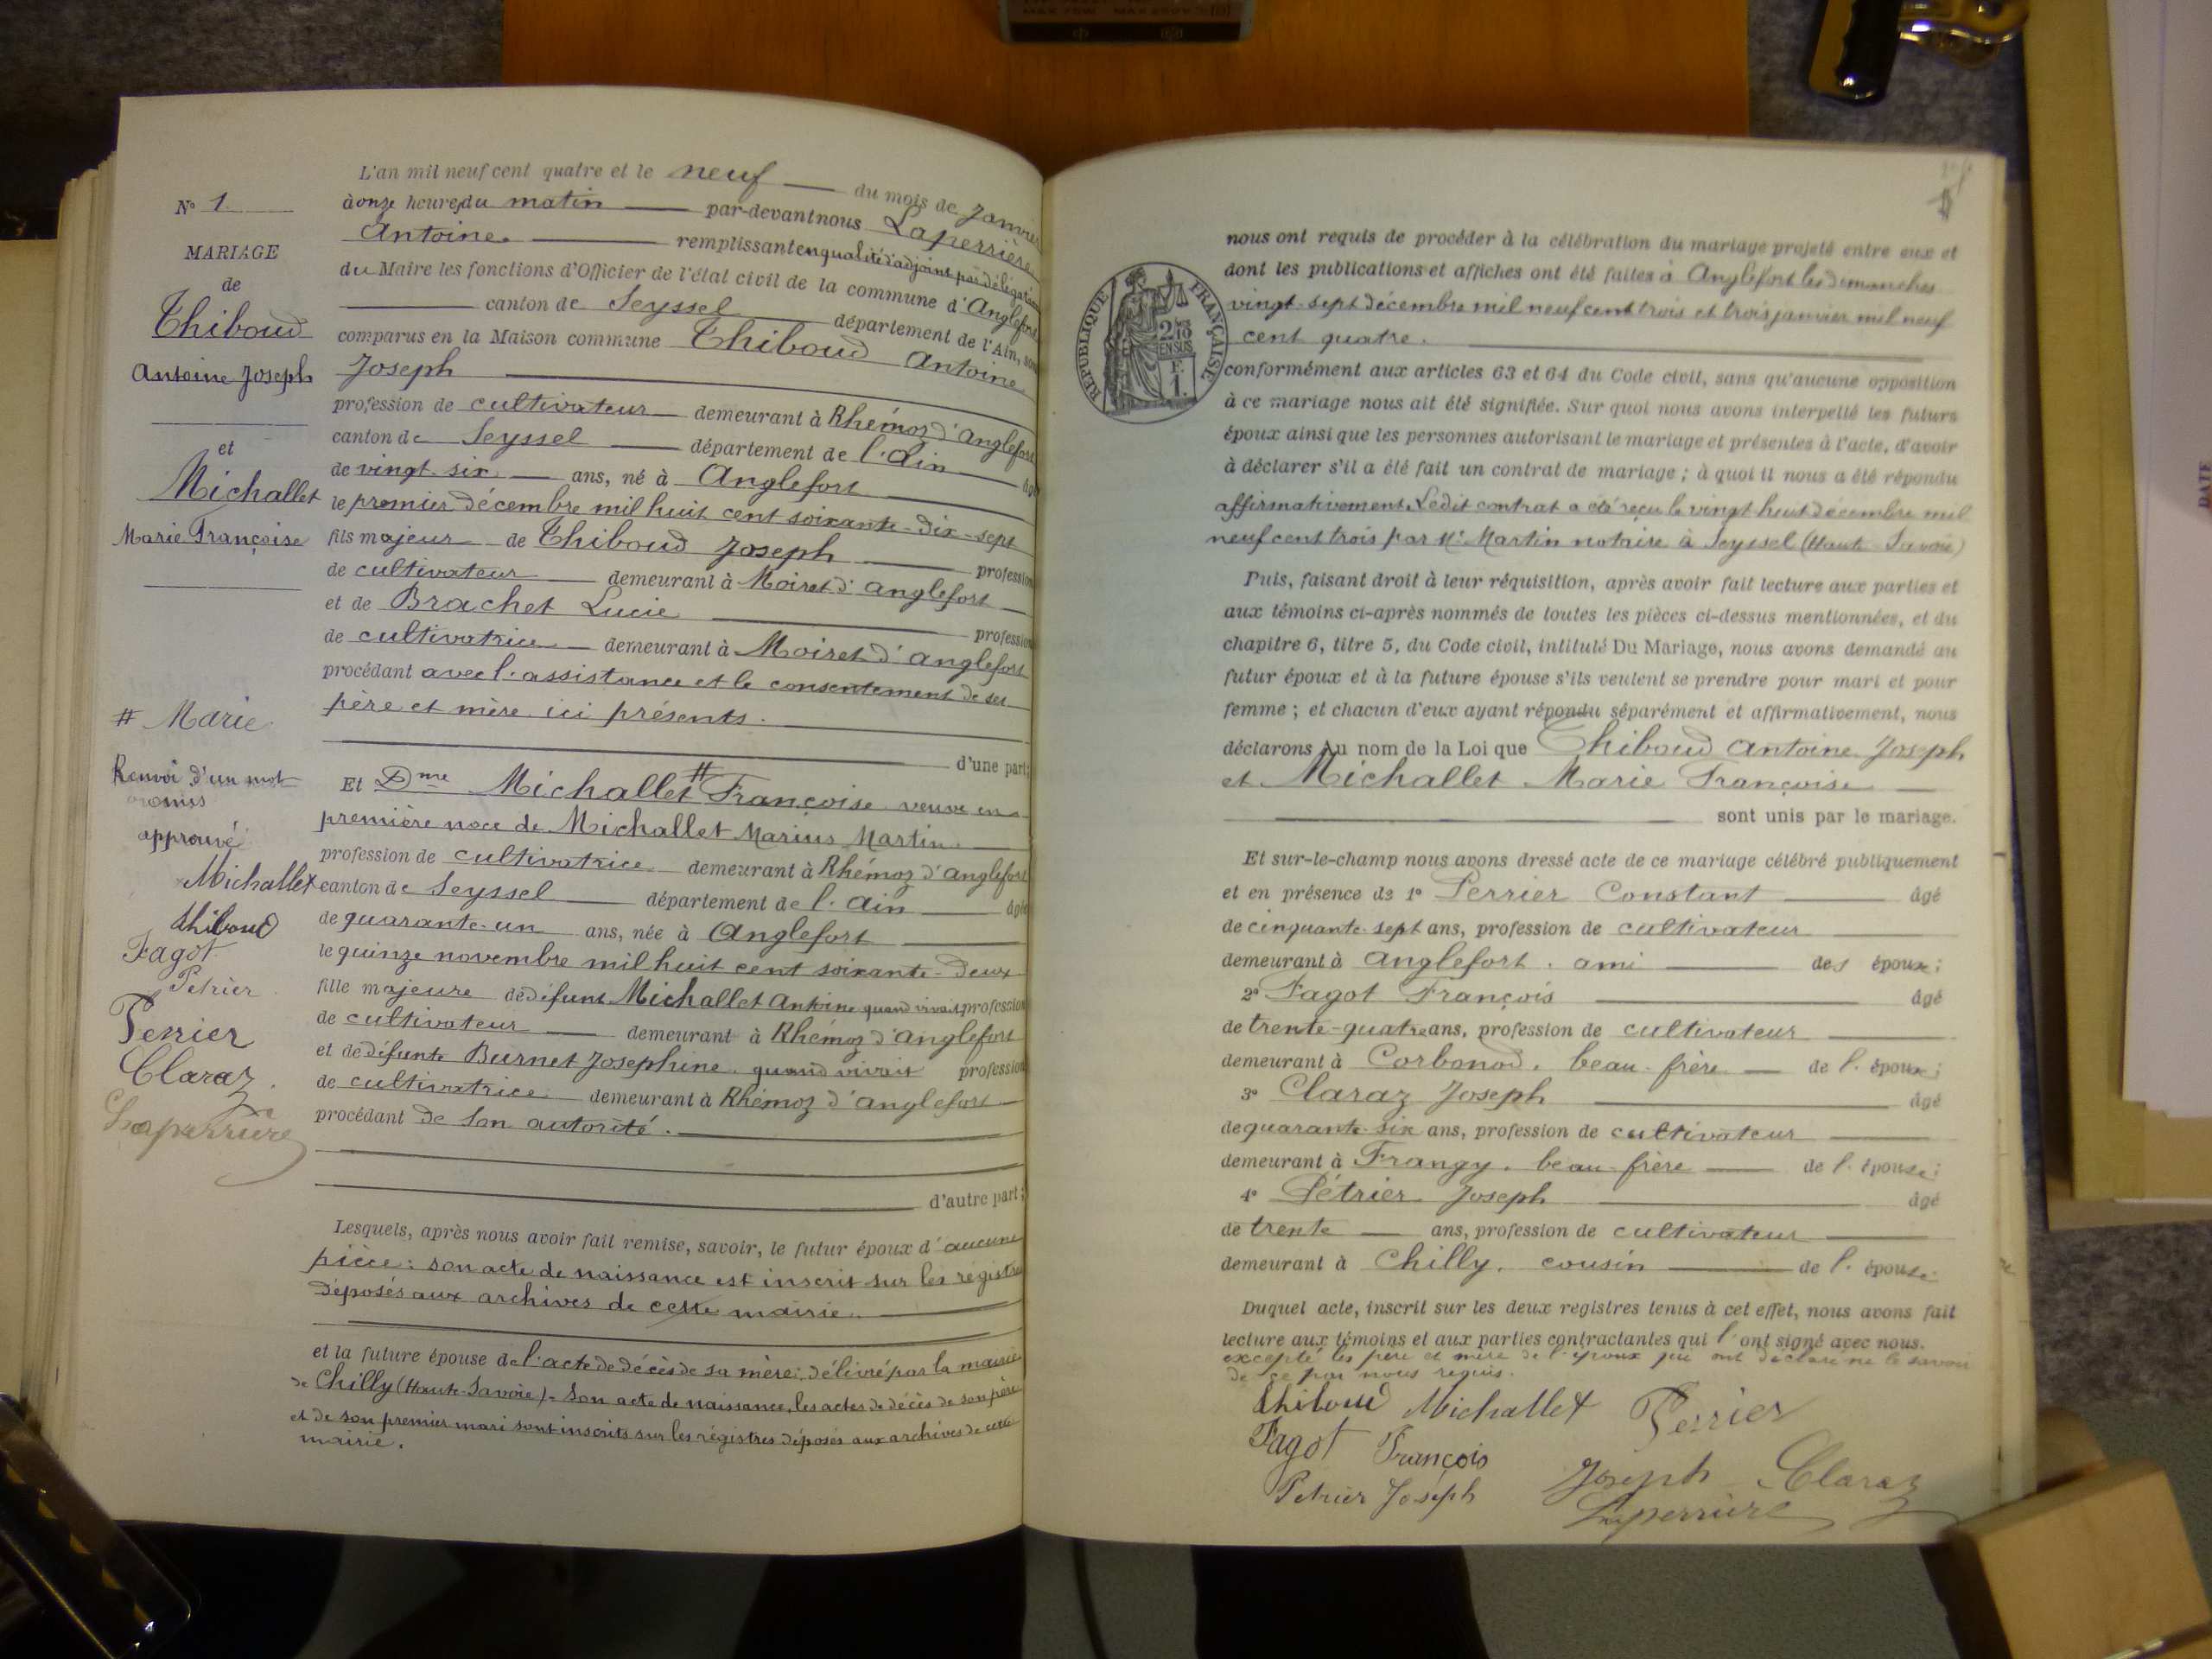 N° 1
MARIAGE
de
Thiboud
Antoine Joseph
et
Michallet
Marie Françoise
# Marie
Renvoi d'un mot
omis
approuvé
Michallet
Thiboud
Fagot
Petrier
Perrier
Claraz
Laperrière
L'an mil neuf cent quatre et le neuf du mois de Janvier
à onze heures du matin par-devant nous Laperrière
Antoine remplissant en qualité d'adjoint par délégation
du Maire les fonctions d'Officier de l'état civil de la commune d'Anglefort
canton de Seyssel département de l'Ain, sont
comparus en la Maison commune Thiboud Antoine
Joseph
profession de cultivateur demeurant à Rhémoz d'Anglefort
canton de Seyssel département de l'Ain âgé
de vingt-six ans, né à Anglefort
le premier décembre mil huit cent soixante-dix-sept
fils majeur de Thiboud Joseph profession
de cultivateur demeurant à Moiret d'Anglefort
et de Brachet Lucie profession
de cultivatrice demeurant à Moiret d'Anglefort
procédant avec l'assistance et le consentement de ses
père et mère ici présents.
d'une part;
Et Dme Michallet # Françoise veuve en
première noce de Michallet Marius Martin
profession de cultivatrice demeurant à Rhémoz d'Anglefort
canton de Seyssel département de l'Ain âgée
de quarante-un ans, née à Anglefort
le quinze novembre mil huit cent soixante-deux
fille majeure de défunt Michallet Antoine quand vivait profession
de cultivateur demeurant à Rhémoz d'Anglefort
et de défunte Burnet Josephine quand vivait profession
de cultivatrice demeurant à Rhémoz d'Anglefort
procédant de son autorité.
d'autre part;
Lesquels, après nous avoir fait remise, savoir, le futur époux d'aucune
pièce: son acte de naissance est inscrit sur les régistres
déposés aux archives de cette mairie.
et la future épouse de l'acte de décès de sa mère: délivré par la mairie
de Chilly (Haute-Savoie) - Son acte de naissance, les actes de décès de son père
et de son premier mari sont inscrits sur les régistres déposés aux archives de cette
mairie.
RÉPUBLIQUE FRANÇAISE
2/10
EN SUS
F.
1.
nous ont requis de procéder à la célébration du mariage projeté entre eux et
dont les publications et affiches ont été faites à Anglefort les dimanches
vingt-sept décembre mil neuf cent trois et trois janvier mil neuf
cent quatre.
conformément aux articles 63 et 64 du Code civil, sans qu'aucune opposition
à ce mariage nous ait été signifiée. Sur quoi nous avons interpellé les futurs
époux ainsi que les personnes autorisant le mariage et présentes à l'acte, d'avoir
à déclarer s'il a été fait un contrat de mariage ; à quoi il nous a été répondu
affirmativement. Ledit contrat a été reçu le vingt-huit décembre mil
neuf cent trois par Me Martin notaire à Seyssel (Haute-Savoie)
Puis, faisant droit à leur réquisition, après avoir fait lecture aux parties et
aux témoins ci-après nommés de toutes les pièces ci-dessus mentionnées, et du
chapitre 6, titre 5, du Code civil, intitulé Du Mariage, nous avons demandé au
futur époux et à la future épouse s'ils veulent se prendre pour mari et pour
femme ; et chacun d'eux ayant répondu séparément et affirmativement, nous
déclarons Au nom de la Loi que Thiboud Antoine Joseph
et Michallet Marie Françoise
sont unis par le mariage.
Et sur-le-champ nous avons dressé acte de ce mariage célébré publiquement
et en présence de 1° Perrier Constant âgé
de cinquante-sept ans, profession de cultivateur
demeurant à Anglefort, ami des époux;
2° Fagot François âgé
de trente-quatre ans, profession de cultivateur
demeurant à Corbonod, beau-frère de l'époux;
3° Claraz Joseph âgé
de quarante-six ans, profession de cultivateur
demeurant à Frangy, beau-frère de l'épouse;
4° Pétrier Joseph âgé
de trente ans, profession de cultivateur
demeurant à Chilly, cousin de l'épouse.
Duquel acte, inscrit sur les deux registres tenus à cet effet, nous avons fait
lecture aux témoins et aux parties contractantes qui l'ont signé avec nous.
excepté les père et mère de l'époux qui ont déclaré ne le savoir
de ce par nous requis.
Thiboud Michallet Perrier
Fagot François
Petrier Joseph Joseph Claraz
Laperrière
DATE